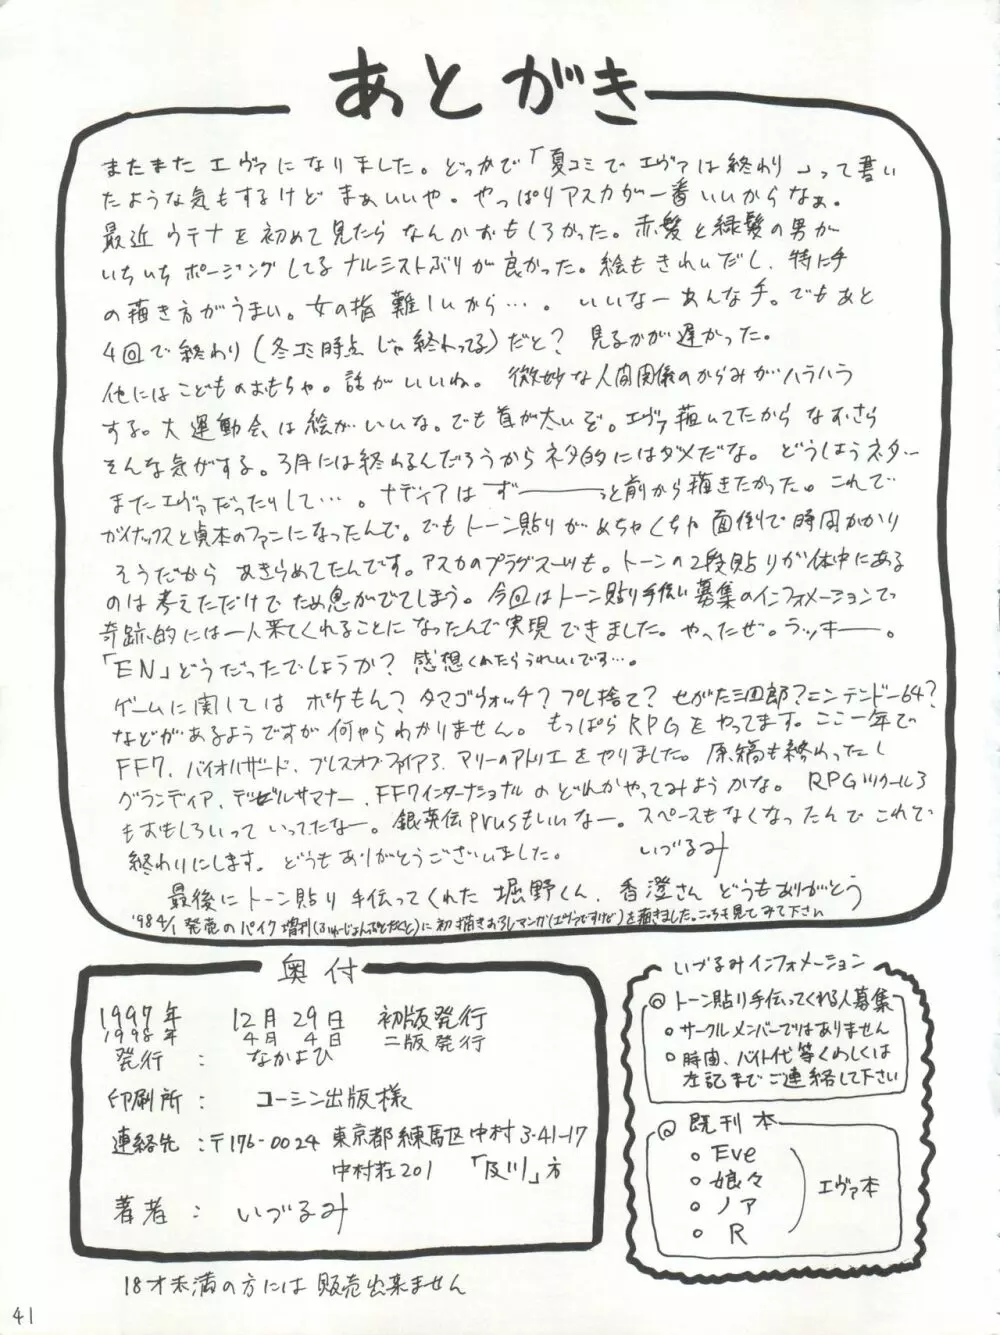 あとがき
またまた エヴァになりました。どっかで「夏コミで エヴァは終わり」って書い
たような気もするけど まぁいいや。やっぱりアスカが一番いいからなぁ。
最近 ウテナを初めて見たら なんかおもしろかった。赤髪と緑髪の男が
いちいち ポージングしてる ナルシストぶりが良かった。絵もきれいだし、特に手
の描き方がうまい。女の指 難しいから…。いいなーあんな手。でもあと
4回で終わり(冬コミ時点じゃ終わってる)だと? 見るのが遅かった。
他にはこどものおもちゃ。話がいいね。微妙な人間関係のからみがハラハラ
する。大運動会は絵がいいな。でも首が太いぞ。エヴァ描いてたからなおさら
そんな気がする。3月には終わるんだろうからネタ的にはダメだな。どうしようネター
またエヴァだったりして…。ナディアは ずーーっと前から描きたかった。これで
ガイナックスと貞本のファンになったんで。でもトーン貼りがめちゃくちゃ面倒で時間かかり
そうだから あきらめてたんです。アスカのプラグスーツも。トーンの2段貼りが体中にある
のは考えただけで ため息がでてしまう。今回はトーン貼り手伝い募集のインフォメーションで
奇跡的には一人来てくれることになったんで実現できました。やったぜ。ラッキー。
「EN」どうだったでしょうか? 感想くれたらうれしいです…。
ゲームに関しては ポケもん? タマゴウォッチ? プレ捨て? せがた三四郎?ニンテンドー64?
などがあるようですが何やらわかりません。もっぱらRPGをやってます。ここ一年で
FF7、バイオハザード、ブレスオブファイア3、マリーのアトリエをやりました。原稿も終わったし
グランディア、デビルサマナー、FF7インターナショナルのどれかやってみようかな。RPGツクール3
もおもしろいっていってたなー。銀英伝prusもいいなー。スペースもなくなったんでこれで
終わりにします。どうもありがとうございました。 いづるみ
最後にトーン貼り手伝ってくれた 堀野くん、香澄さん どうもありがとう
'98 4/1 発売のパイク増刊(ふゅーじょんぷろだくと)に初描きおろしマンガ(エヴァですけど)を描きました。こっちも見てみて下さい
奥付
1997年 12月29日 初版発行
1998年 4月 4日 二版発行
発行 : なかよひ
印刷所 : コーシン出版様
連絡先 : 〒176-0024 東京都練馬区中村3-41-17
中村荘201 「及川」方
著者 : いづるみ
いづるみインフォメーション
◎ トーン貼り手伝ってくれる人募集
○ サークルメンバーではありません
○ 時間、バイト代等くわしくは
左記までご連絡して下さい
◎ 既刊本
○ Eve
○ 娘々
○ ノア
○ R
エヴァ本
18才未満の方には 販売出来ません
41